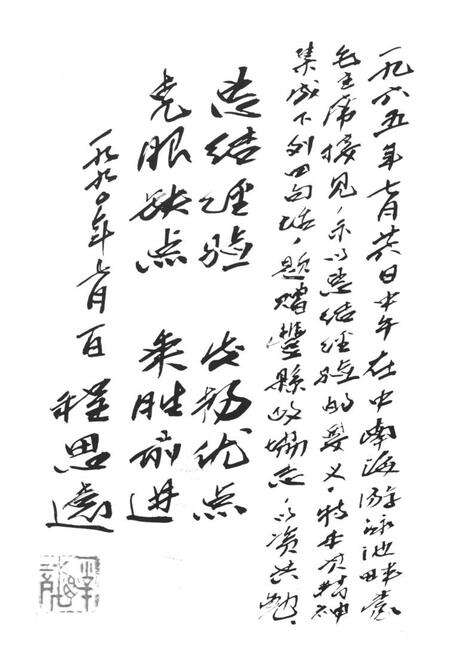 一九六五年七月廿六日中午在中南海游泳池畔蒙
毛主席接见，示以总结经验的要义。特本其精神
集成下列四句话，题赠豐縣政協志，以资共勉。
总结经验 发扬优点
克服缺点 乘胜前进
一九九〇年七月一日 程思遠